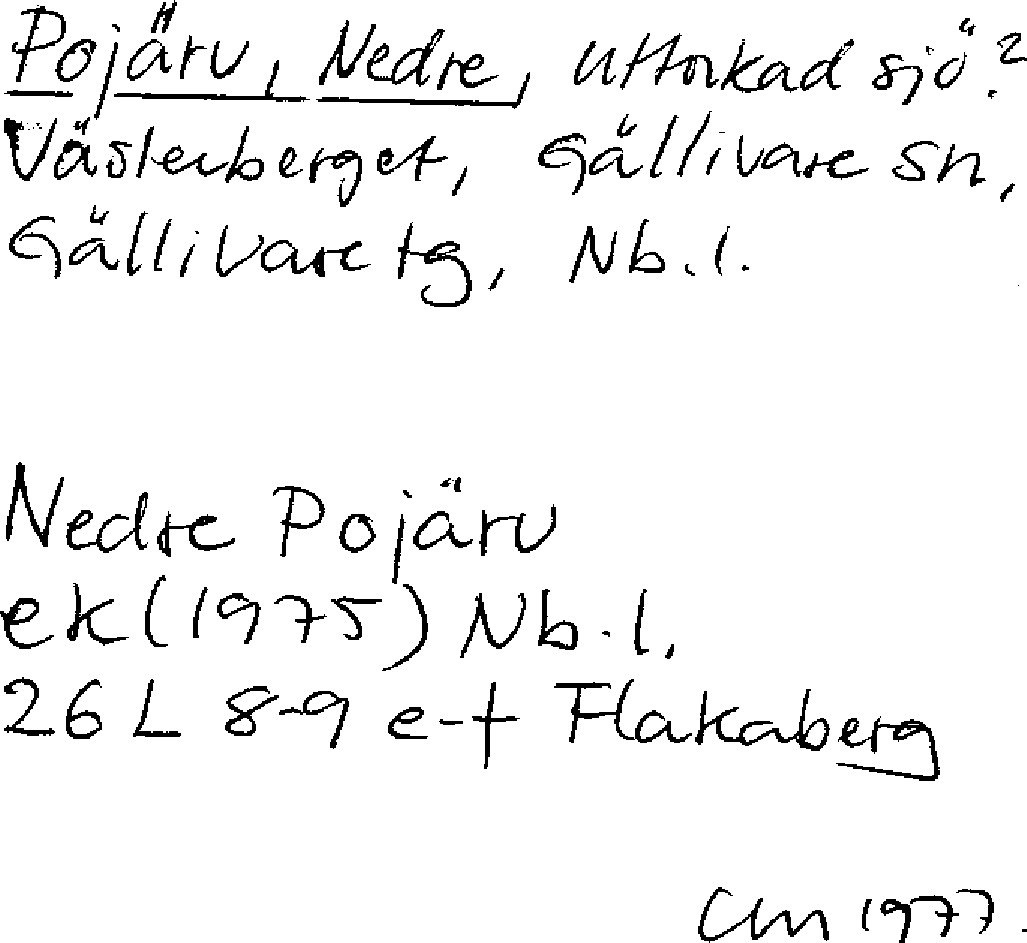 Pojärv, Nedre, uttorkad sjö?
Västerberget, Gällivare sn,
Gällivare tg, Nb.l.
Nedre Pojärv
ek (1975) Nb.l.
26 L 8-9 e-f Flakaberg
CM 1977.